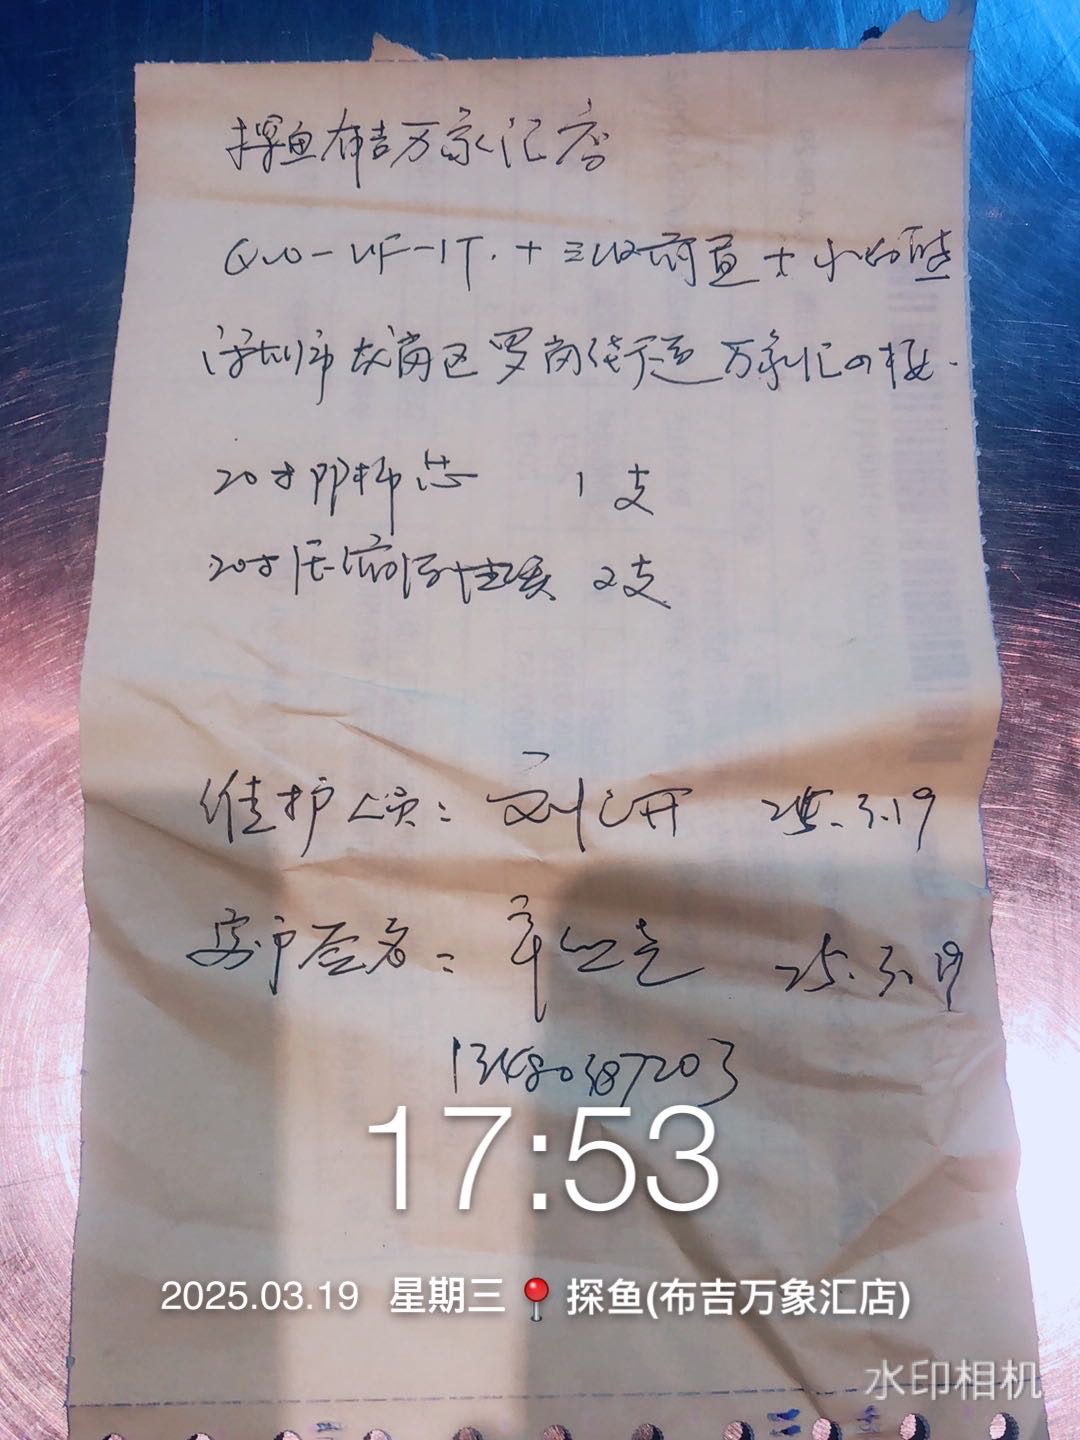 探鱼布吉万象汇店
QVO-UF-1T.+三级前置+小奶昔
深圳市龙岗区罗岗街道万象汇四楼.
20寸阻垢芯 1支
20寸压缩活性炭 2支
维护人员: 刘汉开 25.3.19
客户签名: 25.3.19
13480387203
17:53
2025.03.19 星期三 探鱼(布吉万象汇店)
水印相机